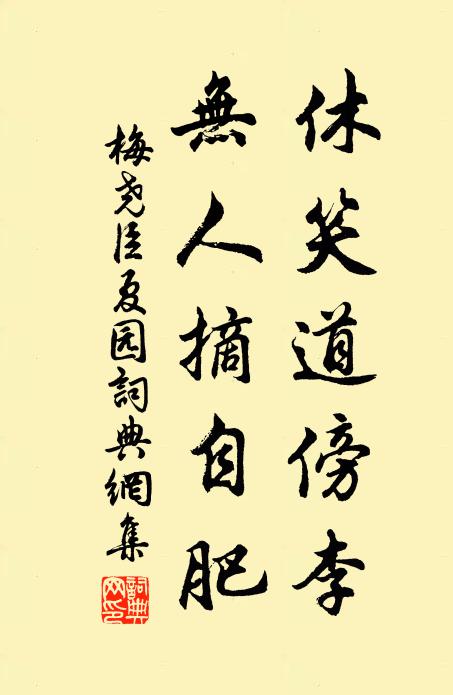 休笑道傍李
無人摘自肥
梅尧臣夏园詞典網集
詞典網印